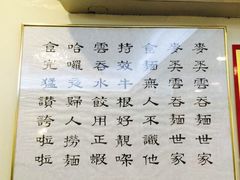 麥奀雲吞麵世家
麥奀雲吞麵世家
食麵無人不識他
持效牛根好靚㗎
雲吞水餃用正蝦
哈囉婦人撈麵
食完猛讚誇啦啦